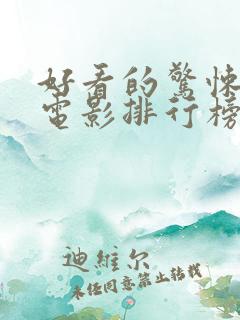 好看的驚悚
電影排行榜
迪維尔
未经同意禁止转载